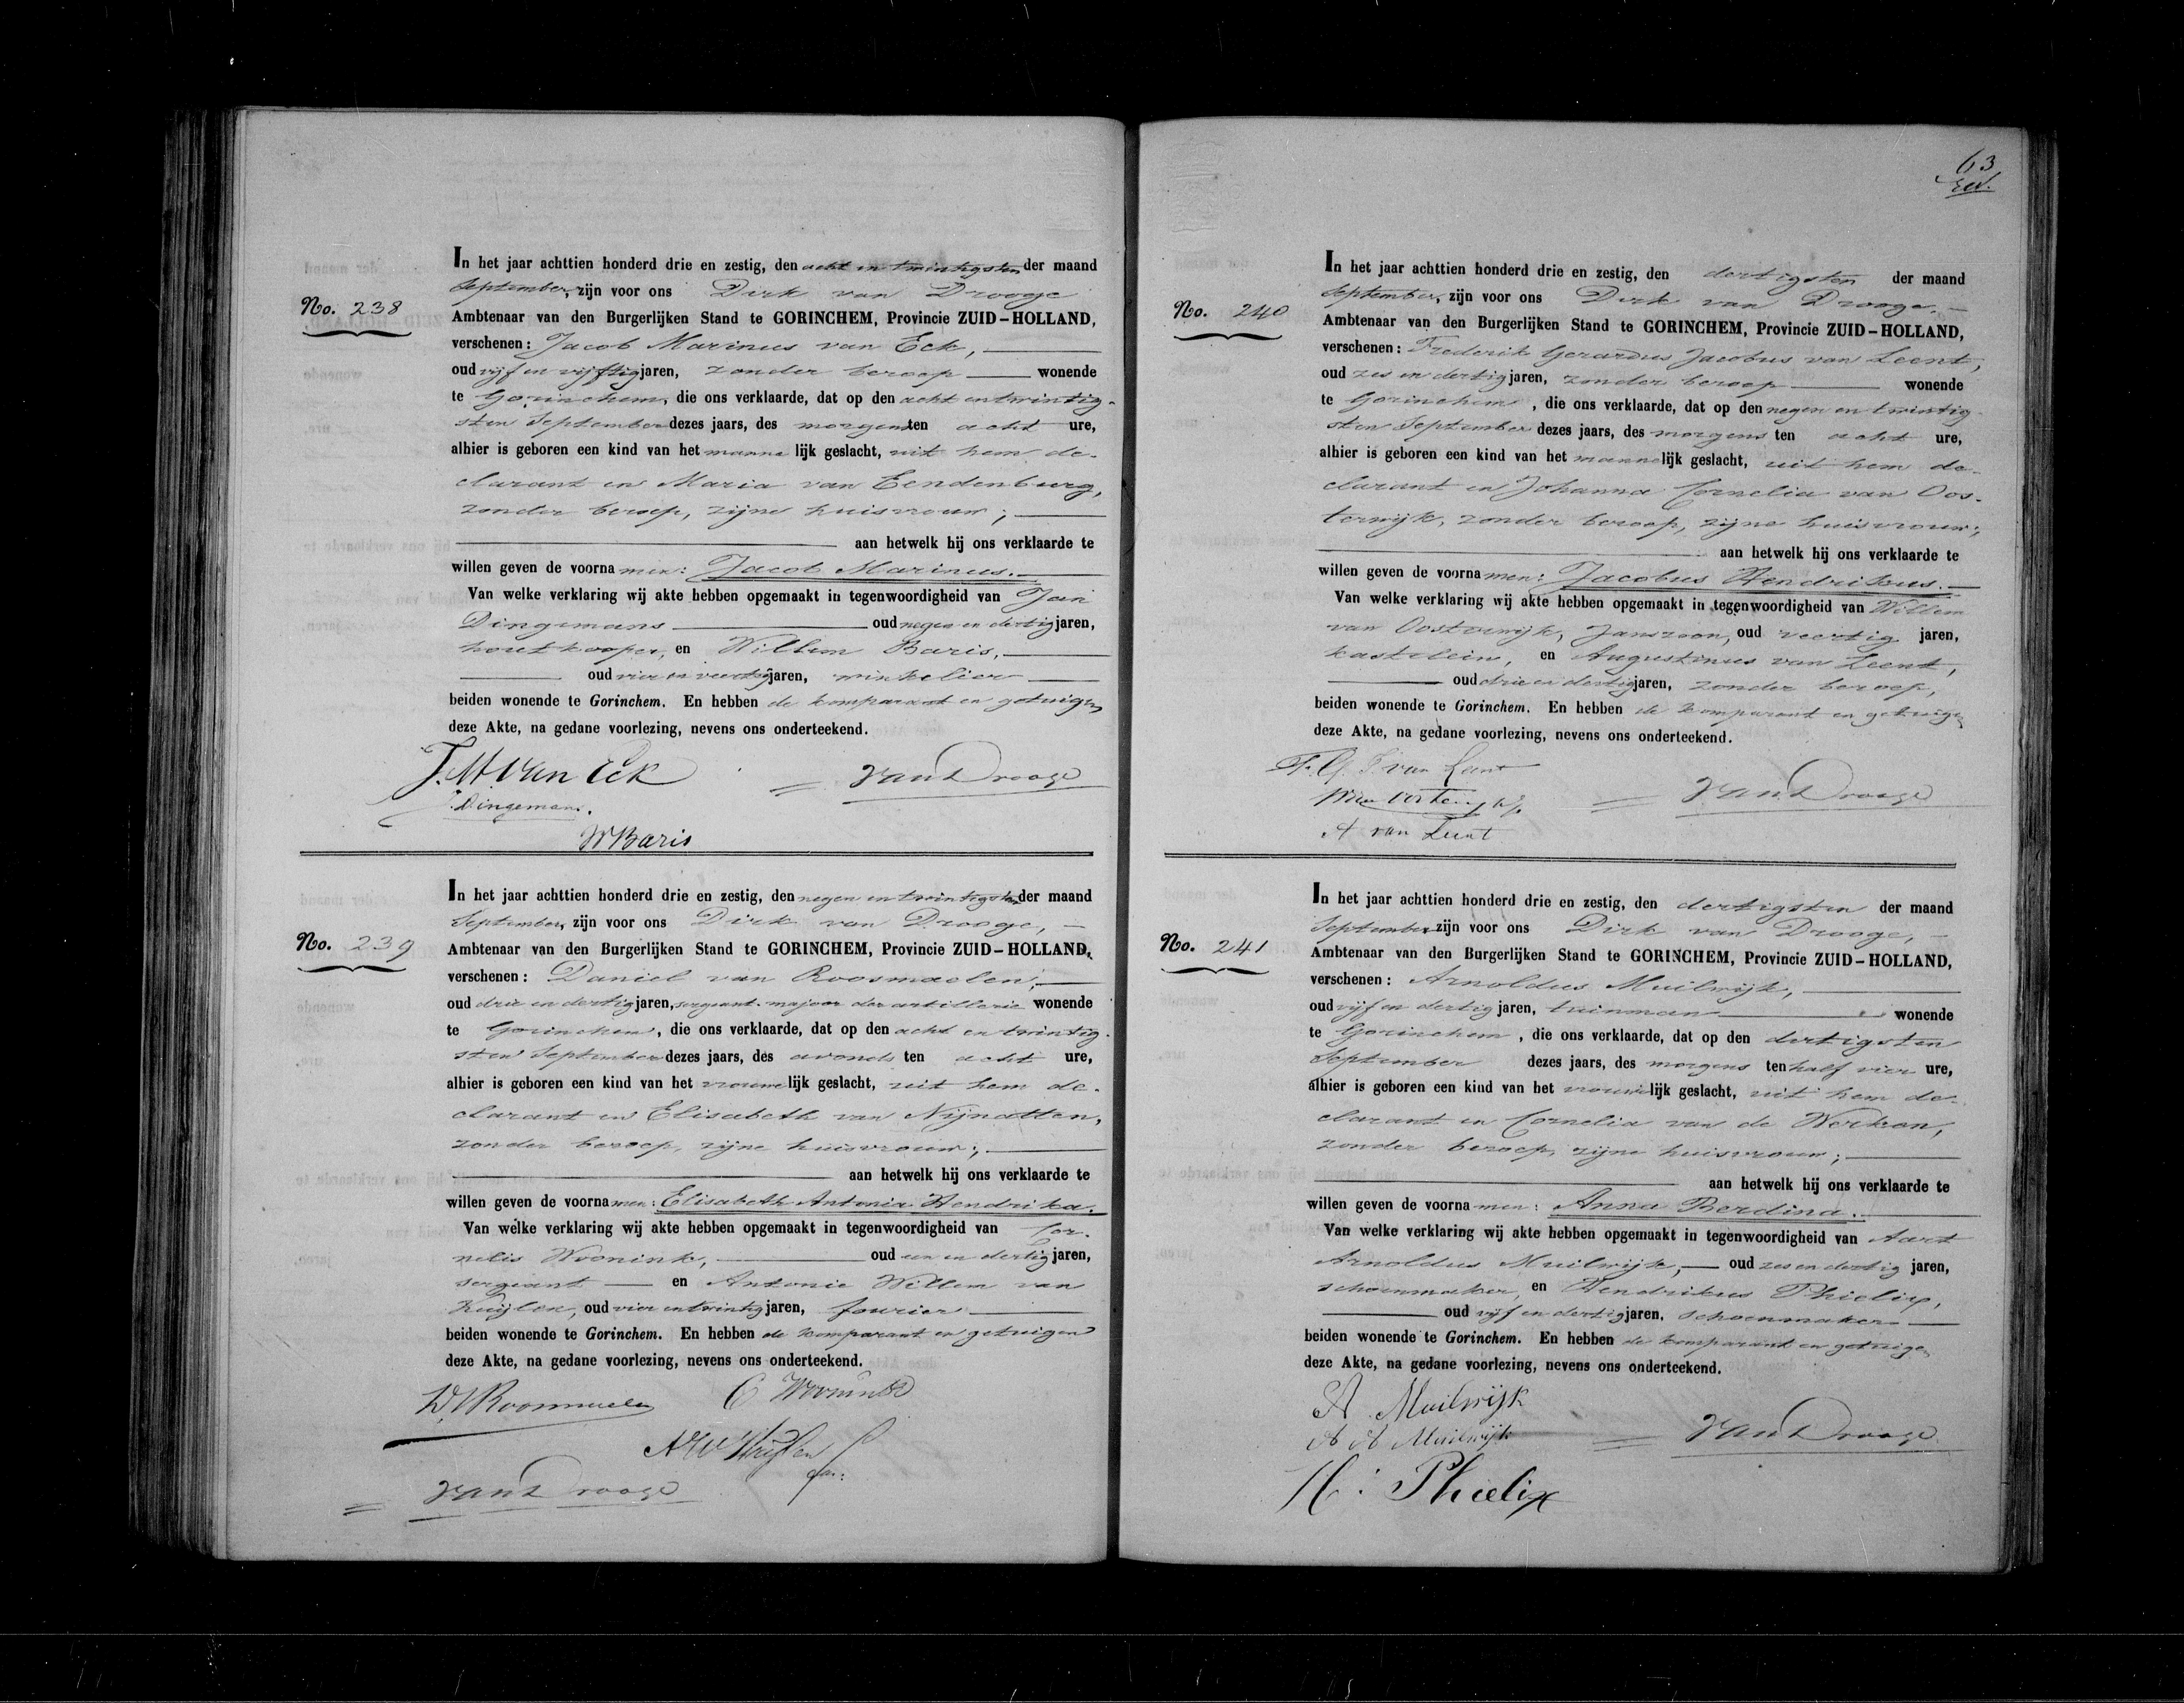 No. 238
In het jaar achttien honderd drie en zestig, den acht en twintigsten der maand
September, zijn voor ons Dirk van Drooge
Ambtenaar van den Burgerlijken Stand te GORINCHEM, Provincie ZUID-HOLLAND,
verschenen: Jacob Marinus van Eck,
oud vijf en vijftig jaren, zonder beroep wonende
te Gorinchem, die ons verklaarde, dat op den acht en twintig-
sten September dezes jaars, des morgens ten acht ure,
alhier is geboren een kind van het mannelijk geslacht, uit hem de-
clarant en Maria van Eendenburg,
zonder beroep, zijne huisvrouw;
aan hetwelk hij ons verklaarde te
willen geven de voornamen: Jacob Marinus.
Van welke verklaring wij akte hebben opgemaakt in tegenwoordigheid van Jan
Dingemans oud negen en dertig jaren,
houtkooper, en Willem Baris,
oud vier en veertig jaren, winkelier
beiden wonende te Gorinchem. En hebben de komparant en getuigen
deze Akte, na gedane voorlezing, nevens ons onderteekend.
J. M van Eck
van Drooge
J. Dingemans.
W Baris
No. 239
In het jaar achttien honderd drie en zestig, den negen en twintigsten der maand
September, zijn voor ons Dirk van Drooge,
Ambtenaar van den Burgerlijken Stand te GORINCHEM, Provincie ZUID-HOLLAND,
verschenen: Daniel van Roosmaelen,
oud drie en dertig jaren, sergeant-majoor der artillerie wonende
te Gorinchem, die ons verklaarde, dat op den acht en twintig-
sten September dezes jaars, des avonds ten acht ure,
alhier is geboren een kind van het vrouwelijk geslacht, uit hem de-
clarant en Elisabeth van Nijnatten,
zonder beroep, zijne huisvrouw;
aan hetwelk hij ons verklaarde te
willen geven de voornamen: Elisabeth Antonia Hendrika.
Van welke verklaring wij akte hebben opgemaakt in tegenwoordigheid van Cor-
nelis Wronink, oud een en dertig jaren,
sergeant en Antonie Willem van
Kuijlen, oud vier en twintig jaren, fourier
beiden wonende te Gorinchem. En hebben de komparant en getuigen
deze Akte, na gedane voorlezing, nevens ons onderteekend.
D V Roosmaelen
C Wronink
van Drooge
63
No. 240
In het jaar achttien honderd drie en zestig, den dertigsten der maand
September, zijn voor ons Dirk van Drooge,
Ambtenaar van den Burgerlijken Stand te GORINCHEM, Provincie ZUID-HOLLAND,
verschenen: Frederik Gerardus Jacobus van Leent,
oud zes en dertig jaren, zonder beroep wonende
te Gorinchem, die ons verklaarde, dat op den negen en twintig-
sten September dezes jaars, des morgens ten acht ure,
alhier is geboren een kind van het mannelijk geslacht, uit hem de-
clarant en Johanna Cornelia van Oos-
terwijk, zonder beroep, zijne huisvrouw;
aan hetwelk hij ons verklaarde te
willen geven de voornamen: Jacobus Hendrikus.
Van welke verklaring wij akte hebben opgemaakt in tegenwoordigheid van Willem
van Oosterwijk, Janszoon, oud veertig jaren,
kastelein, en Augustinus van Leent,
oud drie en dertig jaren, zonder beroep,
beiden wonende te Gorinchem. En hebben de komparant en getuigen
deze Akte, na gedane voorlezing, nevens ons onderteekend.
F. G. J. van Leent
van Drooge
A van Leent
No. 241
In het jaar achttien honderd drie en zestig, den dertigsten der maand
September zijn voor ons Dirk van Drooge,
Ambtenaar van den Burgerlijken Stand te GORINCHEM, Provincie ZUID-HOLLAND,
verschenen: Arnoldus Muilwijk,
oud vijf en dertig jaren, tuinman wonende
te Gorinchem, die ons verklaarde, dat op den dertigsten
September dezes jaars, des morgens ten half vier ure,
alhier is geboren een kind van het vrouwelijk geslacht, uit hem de-
clarant en Cornelia van de Werken,
zonder beroep, zijne huisvrouw;
aan hetwelk hij ons verklaarde te
willen geven de voornamen: Anna Berdina.
Van welke verklaring wij akte hebben opgemaakt in tegenwoordigheid van Aart
Arnoldus Muilwijk, oud zes en dertig jaren,
schoenmaker, en Hendrikus Phielix,
oud vijf en dertig jaren, schoenmaker
beiden wonende te Gorinchem. En hebben de komparant en getuigen
deze Akte, na gedane voorlezing, nevens ons onderteekend.
A Muilwijk
A A Muilwijk
van Drooge
H: Phielix